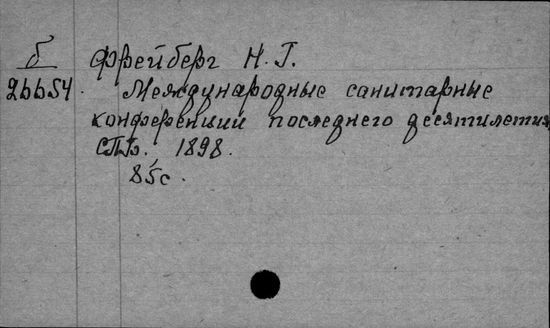 б Фрейберг Н. Г.
26654. Международные санитарные
конференции последнего десятилетия
СПб., 1898.
85с.